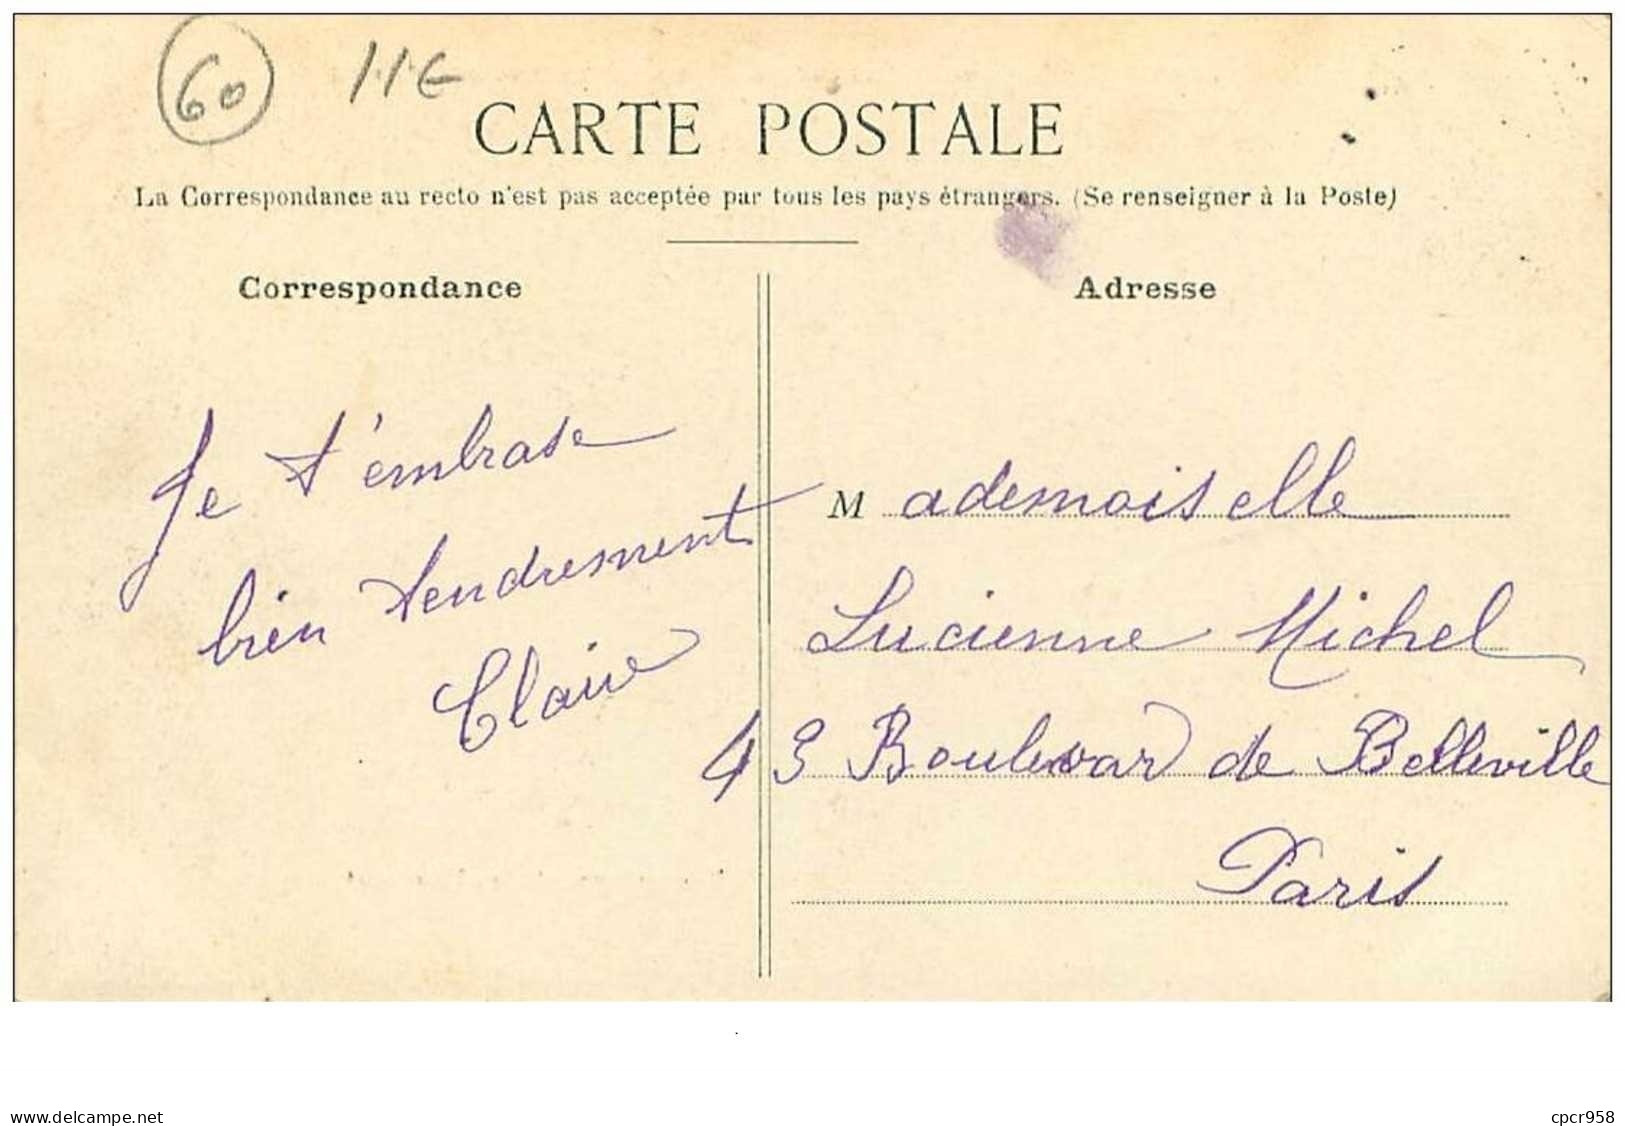 60
11E
CARTE POSTALE
La Correspondance au recto n'est pas acceptée par tous les pays étrangers. (Se renseigner à la Poste)
Correspondance
Je t'embrase
bien tendrement
Claire
Adresse
Mademoiselle
Lucienne Michel
43 Boulevard de Belleville
Paris
www.delcampe.net
cpcr958